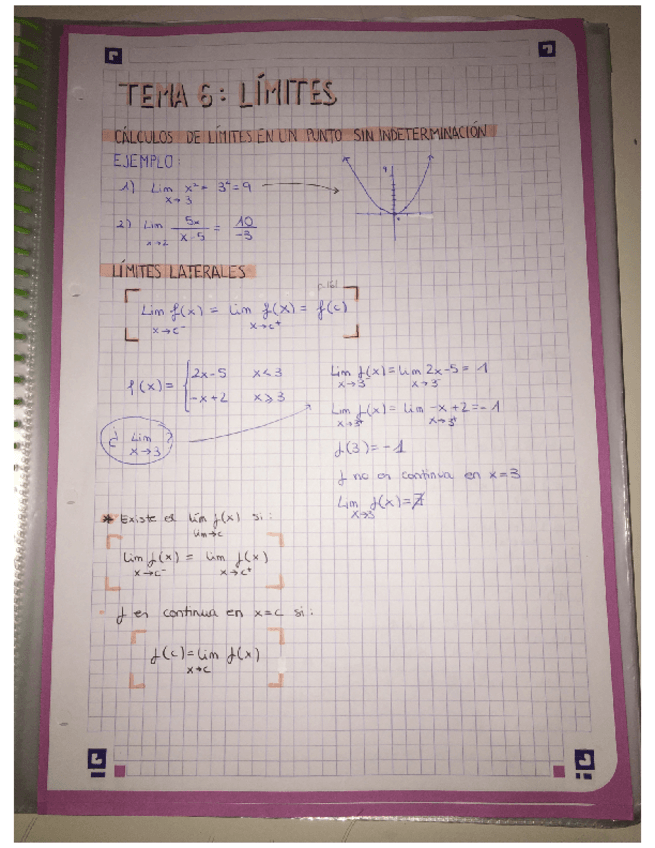 TEMA 6: LÍMITES
CÁLCULOS DE LÍMITES EN UN PUNTO SIN INDETERMINACIÓN
EJEMPLO:
1) Lim x² = 3² = 9
x→3
2) Lim 5x / x-5 = 10 / -3
x→2
LÍMITES LATERALES
Lim f(x) = Lim f(x) = f(c)
x→c⁻ x→c⁺
f(x) = { 2x-5 x<3
-x+2 x⩾3
¿ Lim ?
x→3
Lim f(x) = Lim 2x-5 = 1
x→3⁻ x→3⁻
Lim f(x) = Lim -x+2 = -1
x→3⁺ x→3⁺
f(3) = -1
f no es continua en x=3
Lim f(x) = ∄
x→3
* Existe el lím f(x) si:
lim→c
Lim f(x) = Lim f(x)
x→c⁻ x→c⁺
- f es continua en x=c si:
f(c) = Lim f(x)
x→c